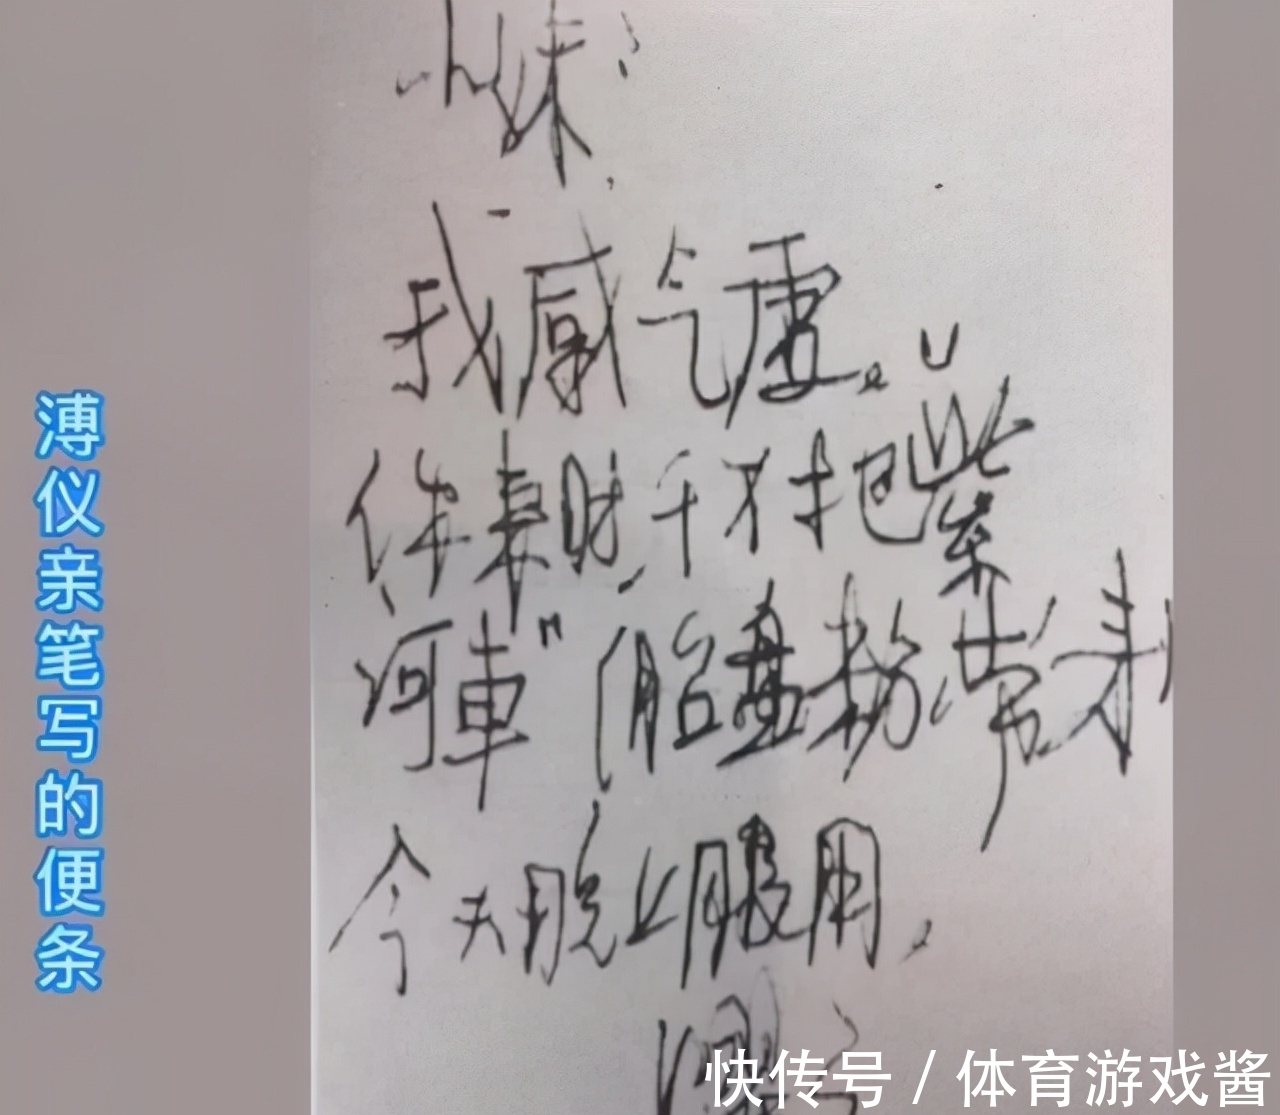 溥仪亲笔写的便条
小妹：
我感气虚。
你来时，千万把“紫
河車”（胎盘粉）带来
今天晚上服用。
快传号 / 体育游戏酱